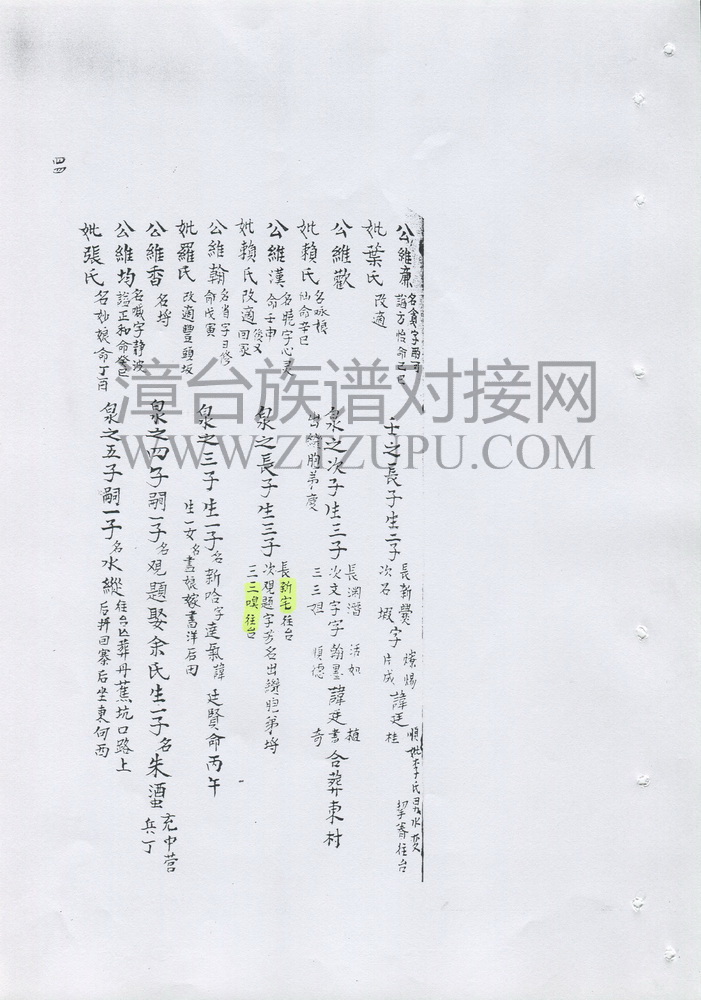 公維廉 名貪字兩可 諡方怡命己巳
士之長子生二子 長新爨 次名嘏字 片成 諱廷桂 順妣李氏 挈眷往台
妣葉氏 改適
公維歡
泉之次子生三子 長淵潛 次文字字翰墨諱廷書合葬東村 三三姐
妣賴氏 名咏娘 仙命辛巳
出繼胞弟慶
公維漢 名曉字心灵 命壬申
泉之長子生三子 長新宅往台 次观題字芳名出繼胞弟埓 三三嗅往台
妣賴氏 改適後又回家
公維翰 名省字日修 命戊寅
泉之三子生一子名新哈字達氣諱廷賢命丙午
妣羅氏 改適豐頭坂
生一女名晝娘嫁書洋后田
公維香 名埓
泉之四子嗣一子名观題娶余氏生一子名朱酒 充中营兵丁
公維均 名城字静波 諡正和命癸巳
泉之五子嗣一子名水縱 往台亾葬丹蕉坑口路上 后拼回寨后坐東向西
妣張氏 名妙娘命丁酉
四四
漳台族谱对接网
WWW.ZTZUPU.COM